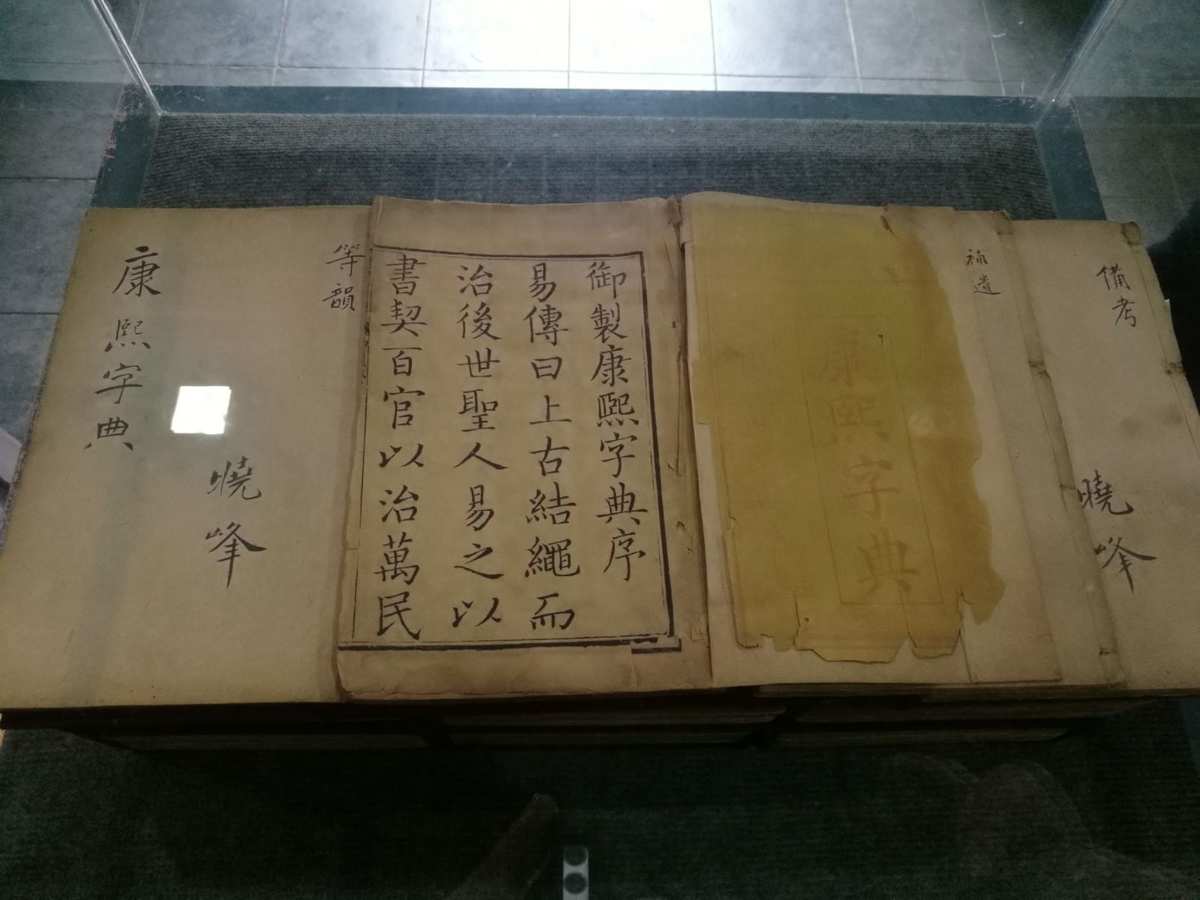 備考
曉峰
補遺
康熙字典
御製康熙字典序
易傳曰上古結繩而
治後世聖人易之以
書契百官以治萬民
等韻
曉峰
康熙字典